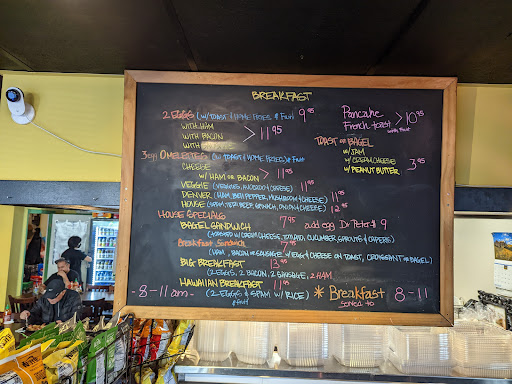 BREAKFAST
2 EGGS (w/ TOAST & HOME FRIES) & Fruit 9.95
WITH HAM
WITH BACON > 11.95
WITH
3 egg OMELETTES (w/ TOAST & HOME FRIES) & Fruit
CHEESE
W/ HAM or BACON > 11.95
VEGGIE (VEGGIES, AVOCADO & CHEESE) 11.95
DENVER (HAM, BELL PEPPER, MUSHROOM & CHEESE) 11.95
HOUSE (SPINACH & CHEESE) 12.95
HOUSE SPECIALS
BAGEL SANDWICH 7.95 add egg
(TOASTED W/ CREAM CHEESE, TOMATO, CUCUMBER, SPROUTS & CAPERS)
Breakfast Sandwich 7.95
(HAM, BACON or SAUSAGE, w/ EGG & CHEESE ON TOAST, CROISSANT or BAGEL)
BIG BREAKFAST 13.95
(2 EGGS, 2 BACON, 2 SAUSAGE, 2 HAM)
HAWAIIAN BREAKFAST 11.95
(2 EGGS & SPAM w/ RICE)
& fruit
- 8-11am -
Pancake
French toast > 10.95
with Fruit
TOAST or BAGEL
W/ JAM
W/ CREAM CHEESE
W/ PEANUT BUTTER 3.95
* Breakfast 8-11
served to